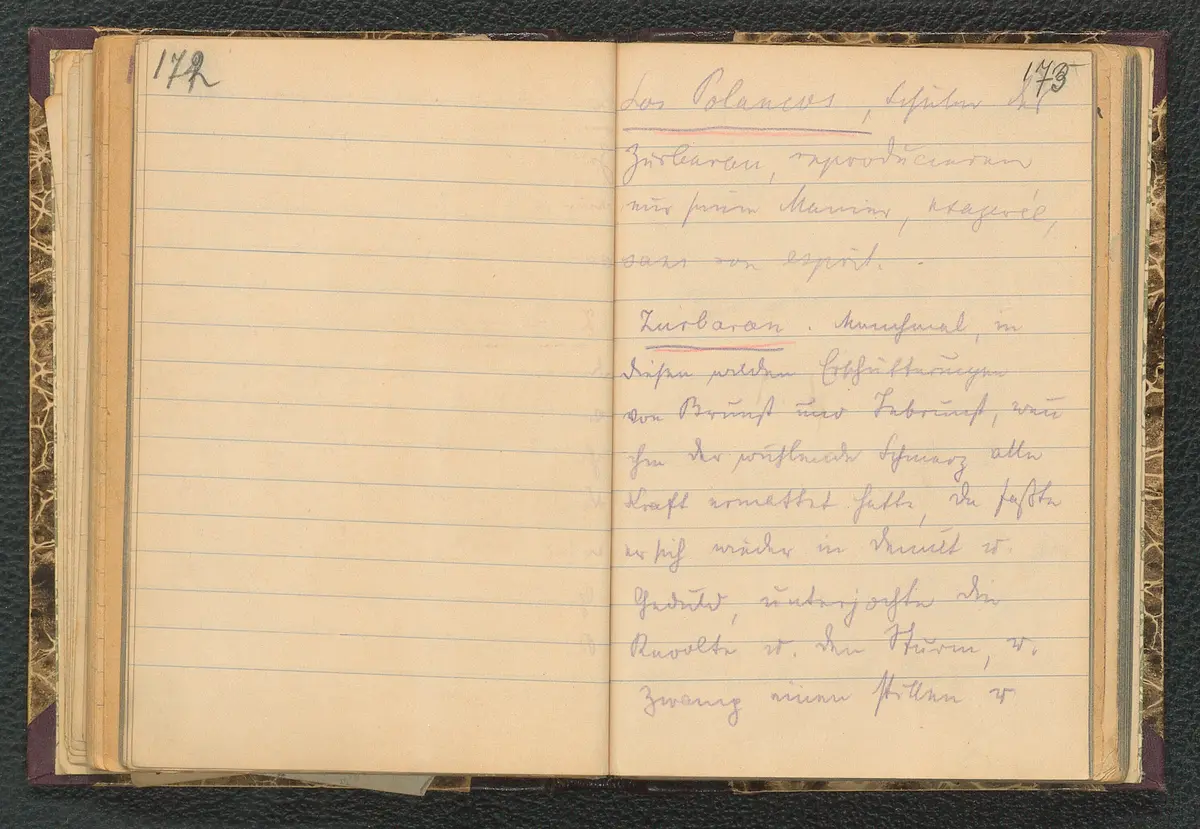 172
173
Los Polancos, Schüler des
Zurbaran, reproducieren
nur seine Manier, exageré,
sans son esprit.
Zurbaran. Manchmal, in
diesen wilden Erschütterungen
von Brunst und Inbrunst, wenn
ihm der wühlende Schmerz alle
Kraft ermattet hatte, da faßte
er sich wieder in Demut u.
Geduld, unterjochte die
Revolte u. den Sturm, u.
zwang einen stillen u